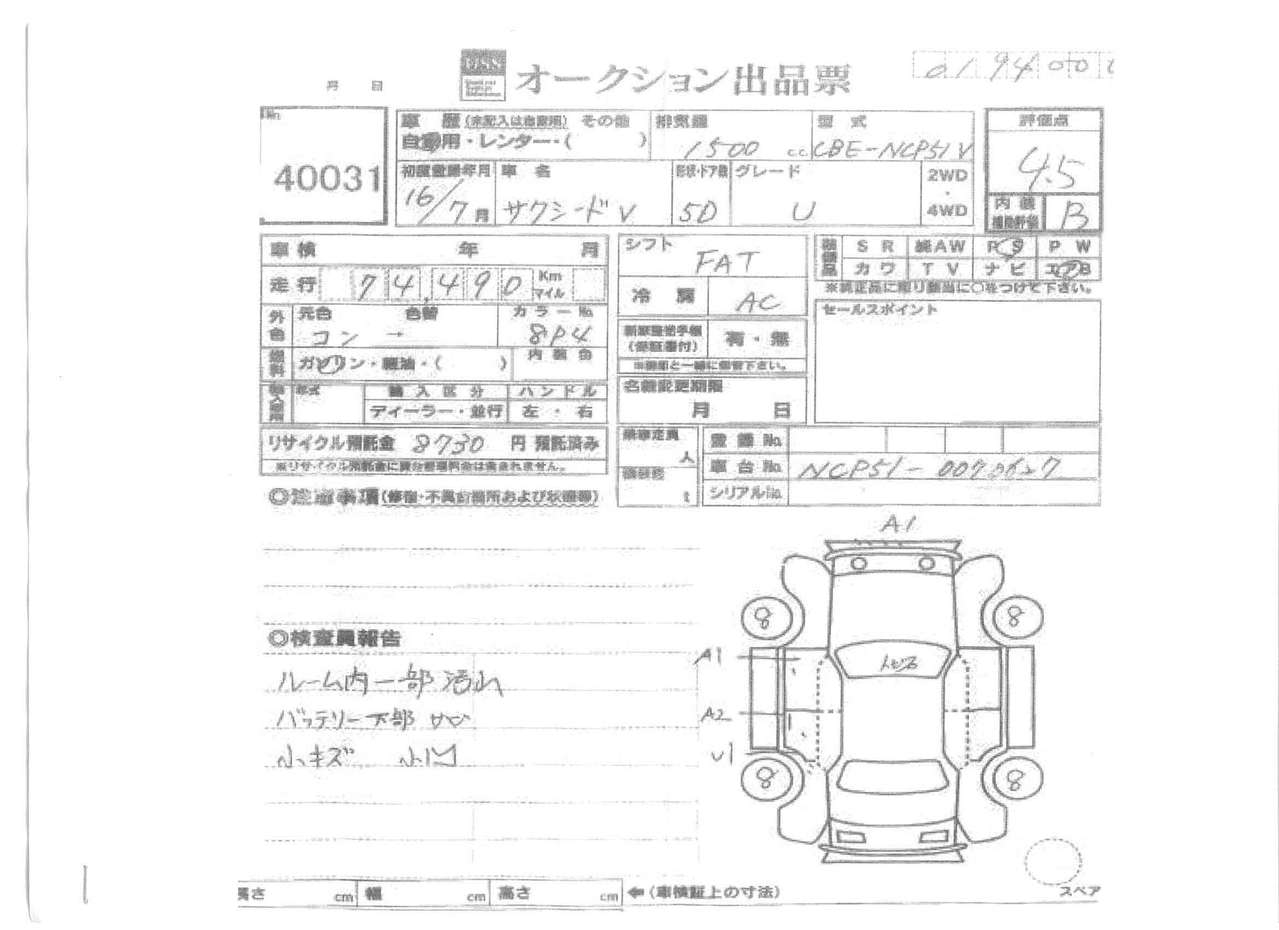 01 94 00
月 日
オークション出品票
No.
40031
車 歴 (未記入は自家用) その他
自家用・レンター・( )
排気量
1500 c.c.
型 式
CBE-NCP51V
評価点
4.5
内装
補助評価
B
初度登録年月
16/7月
車 名
サクシードV
形状・ドア数
5D
グレード
U
2WD
・
4WD
車 検 年 月
走 行 74,490 Km
マイル
外色
元色 色替
コン →
カラーNo.
8P4
燃料
ガソリン・軽油・( )
内 装 色
年式
輸 入 区 分
ハ ン ド ル
ディーラー・並行
左 ・ 右
リサイクル預託金 8730 円 預託済み
※リサイクル預託金に資金管理料金は含まれません。
シフト
FAT
冷 房
AC
新車整備手帳
(保証書付)
有 ・ 無
※書類と一緒に保管下さい。
名義変更期限
月 日
装備品
S R 純AW P S P W
カワ T V ナビ エアB
※純正品に限り該当に○をつけて下さい。
セールスポイント
乗車定員
人
積載量
t
登 録 No.
車 台 No. NCP51-0070627
シリアルNo.
◎注意事項(修復・不具合箇所および状態等)
◎検査員報告
ルーム内一部汚れ
バッテリー下部サビ
小キズ 小凹
A1
A1
A2
U1
トビ石
8
8
8
8
スペア
高さ cm 幅 cm 高さ cm ←(車検証上の寸法)